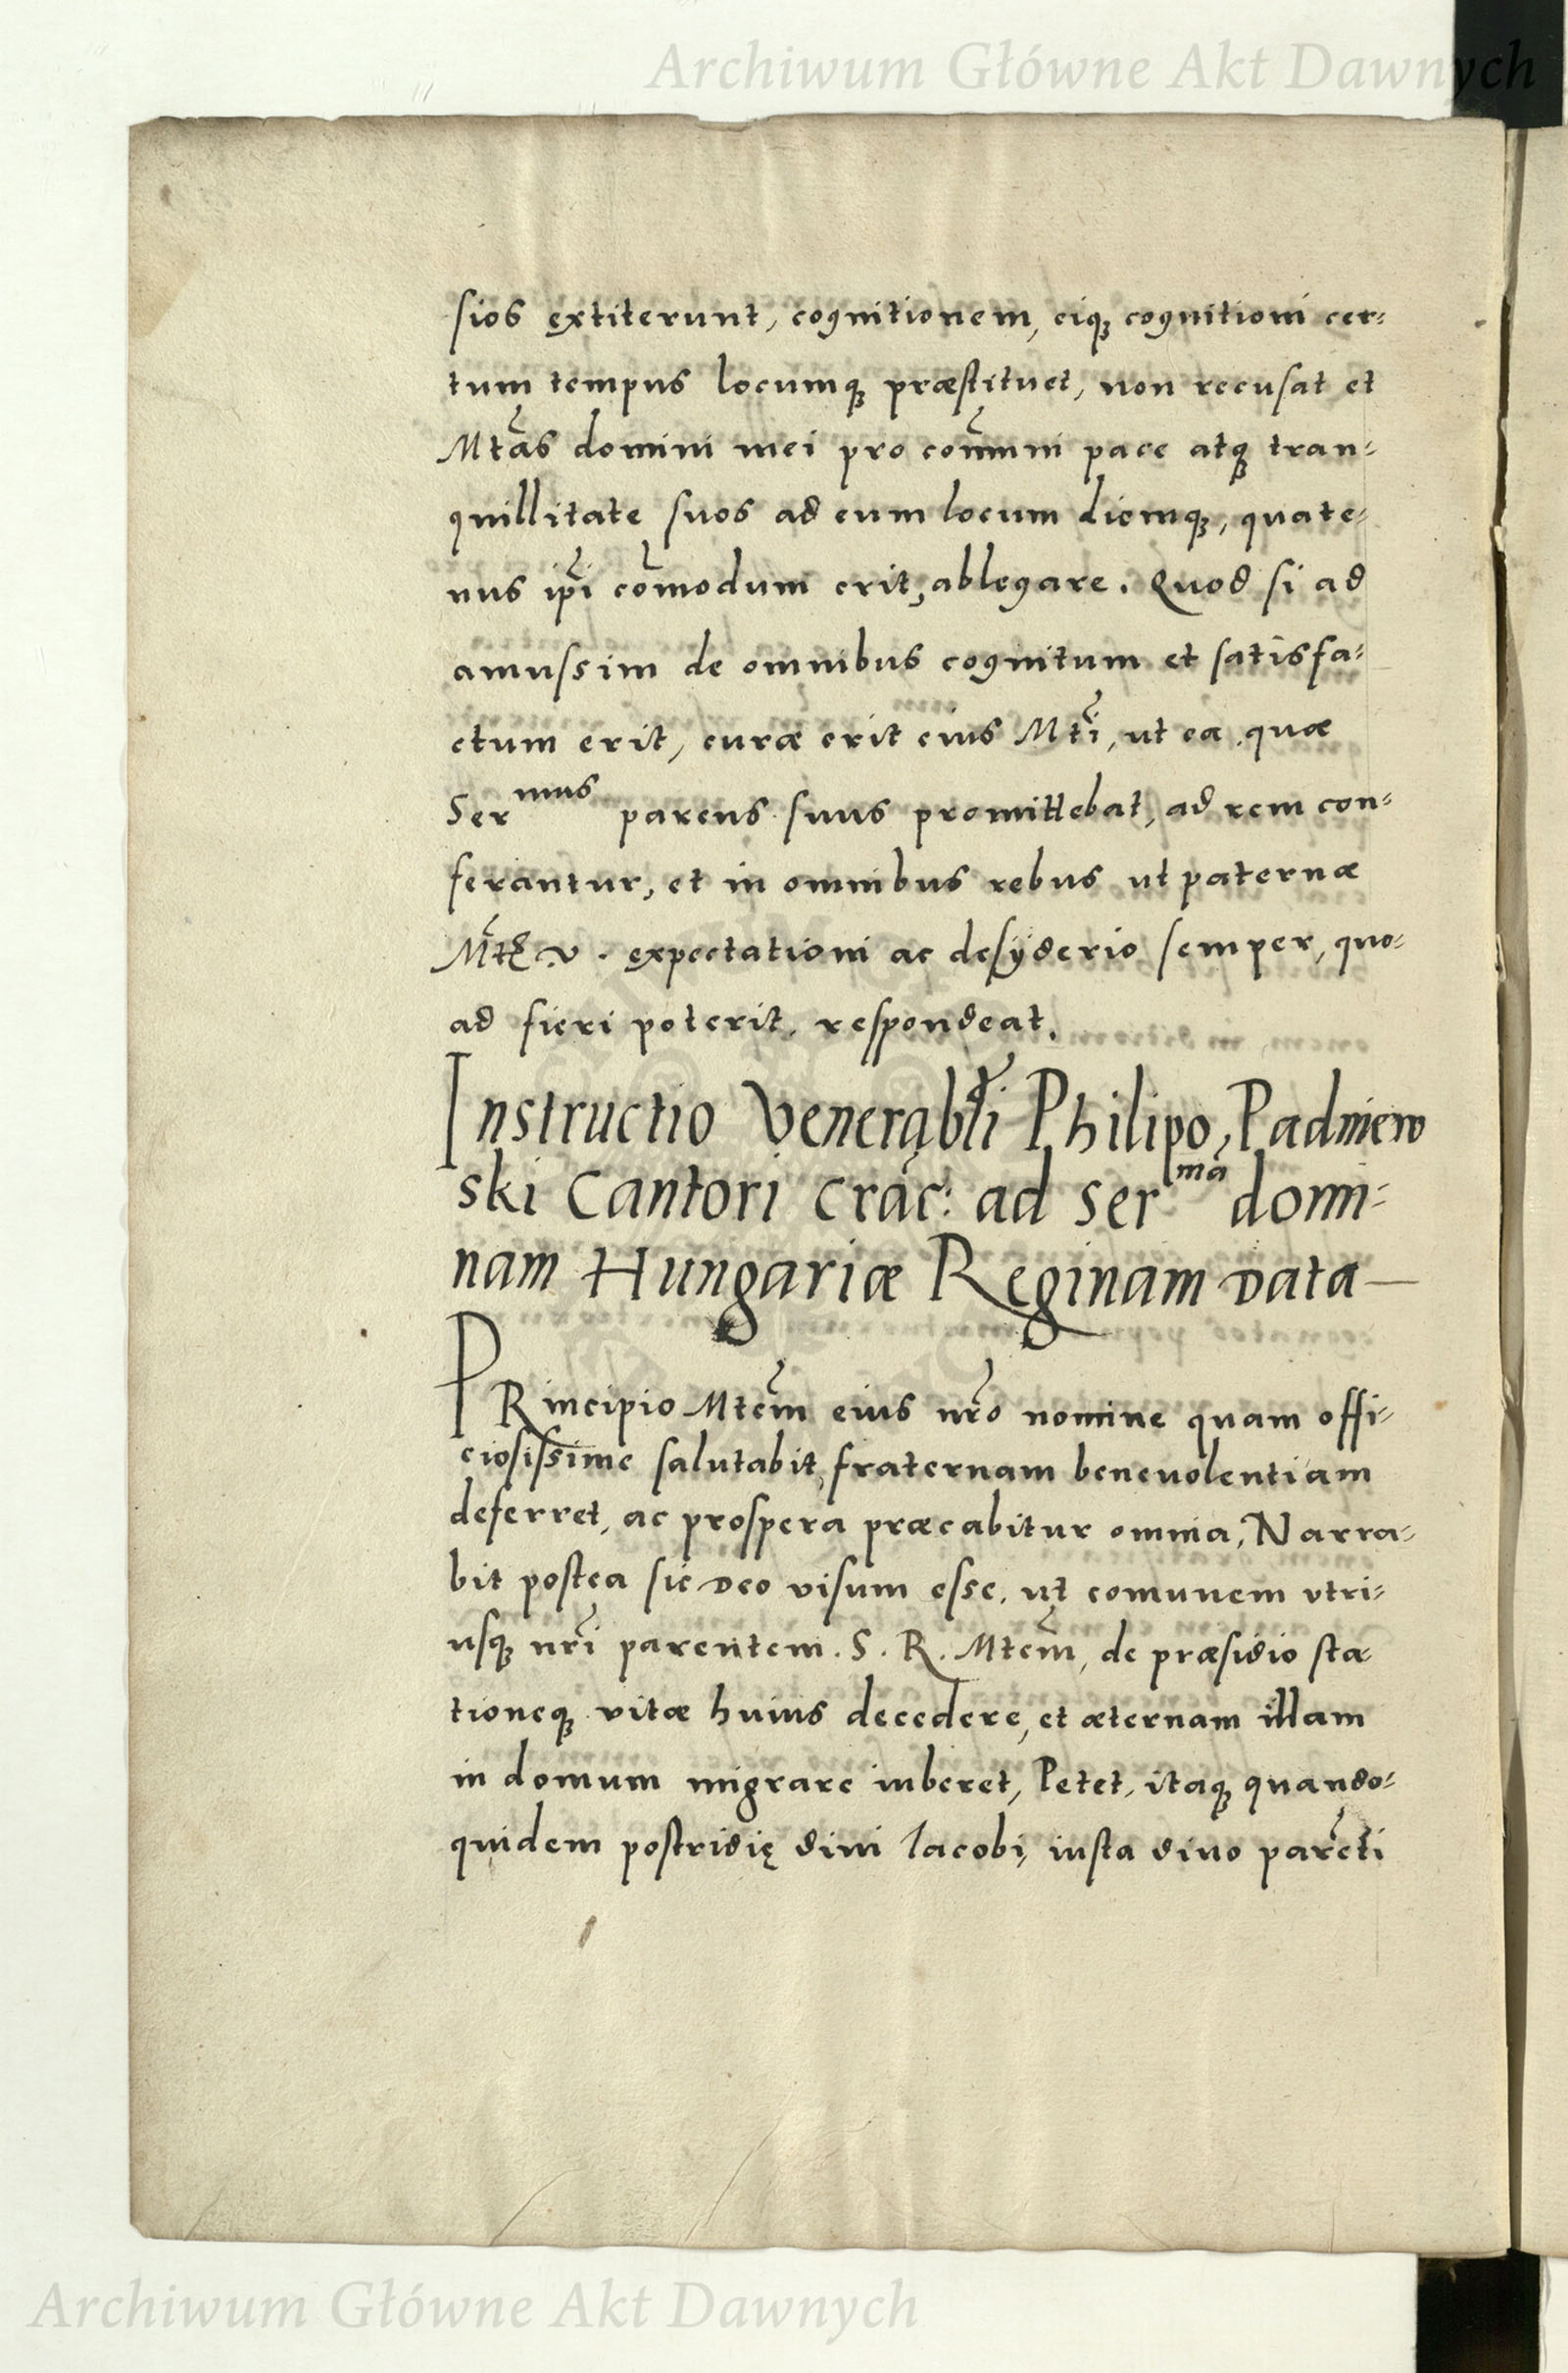 Archiwum Główne Akt Dawnych
sios extiterunt, cognitionem, eiq3 cognitioni cer=
tum tempus locumq3 præstituet, non recusat et
Mtãs domini mei pro cõmuni pace atq3 tran=
quillitate suos ad eum locum diemq3, quate=
nus ip̃i cõmodum erit, ablegare. Quod si ad
amussim de omnibus cognitum et satisfa=
ctum erit, curæ erit eius Mtĩ, ut ea quæ
Ser^mus parens suus promittebat, ad rem con=
ferantur, et in omnibus rebus ut paternæ
v. expectationi ac desyderio semper, quo=
ad fieri poterit, respondeat.
Instructio Venerabłi Philipo, Padniew
ski Cantori Crãc: ad Ser^mã domi=
nam Hungariæ Reginam data—
PRincipio Mtem̃ eius nr̃o nomine quam offi=
ciosissime salutabit, fraternam beneuolentiam
deferret, ac prospera præcabitur omnia, Narra=
bit postea sic deo visum esse, ut comunem vtri=
usq3 nr̃i parentem. S. R. Mtem̃, de præsidio sta
tioneq3 vitæ huius decedere, et æternam illam
in domum migrare iuberet, Petet, itaq3 quando=
quidem postridię diui Iacobi, iusta diuo parẽti
Archiwum Główne Akt Dawnych